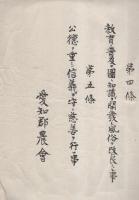 第四條
教育ノ普及ヲ圖リ知識ヲ開發シ風俗ヲ改良スル事
第五條
公德ヲ重シ信義ヲ守リ慈善ヲ行フ事
愛知郡農會